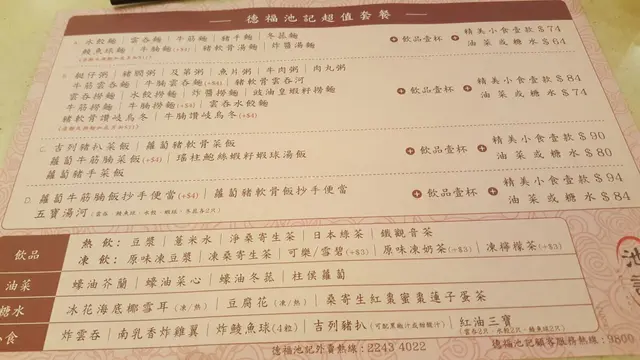 德福池記超值套餐
A. 水餃麵｜雲吞麵｜牛筋麵｜豬手麵｜冬菇麵
鯪魚球麵｜牛腩麵(+$4)｜豬軟骨湯麵｜炸醬湯麵
+ 飲品壹杯 + 精美小食壹款 $74
油菜或糖水 $64
艇仔粥｜豬膶粥｜及第粥｜魚片粥｜牛肉粥｜肉丸粥
牛筋雲吞麵｜牛腩雲吞麵(+$4)｜豬軟骨雲吞河
雲吞撈麵｜水餃撈麵｜炸醬撈麵｜豉油皇蝦籽撈麵
牛筋撈麵｜牛腩撈麵(+$4)｜雲吞水餃麵
豬軟骨讚岐烏冬｜牛腩讚岐烏冬(+$4)
+ 飲品壹杯 + 精美小食壹款 $84
油菜或糖水 $74
C. 吉列豬扒菜飯｜蘿蔔豬軟骨菜飯
蘿蔔牛筋腩菜飯(+$4)｜瑤柱鮑絲蝦籽蝦球湯飯
蘿蔔豬手菜飯
+ 飲品壹杯 + 精美小食壹款 $90
油菜或糖水 $80
D. 蘿蔔牛筋腩飯抄手便當(+$4)｜蘿蔔豬軟骨飯抄手便當
五寶湯河
+ 飲品壹杯 + 精美小食壹款 $94
油菜或糖水 $84
飲品 熱飲：豆漿｜薏米水｜淨桑寄生茶｜日本綠茶｜鐵觀音茶
凍飲：原味凍豆漿｜凍桑寄生茶｜可樂/雪碧(+$3)｜原味凍奶茶(+$3)｜凍檸檬茶(+$3)
油菜 蠔油芥蘭｜蠔油菜心｜蠔油冬菇｜柱侯蘿蔔
糖水 冰花海底椰雪耳(凍/熱)｜豆腐花(凍/熱)｜桑寄生紅棗蜜棗蓮子蛋茶
小食 炸雲吞｜南乳香炸雞翼｜炸鯪魚球(4粒)｜吉列豬扒｜紅油三寶
德福池記外賣熱線：2243 4022 德福池記顧客服務熱線：9800
池記